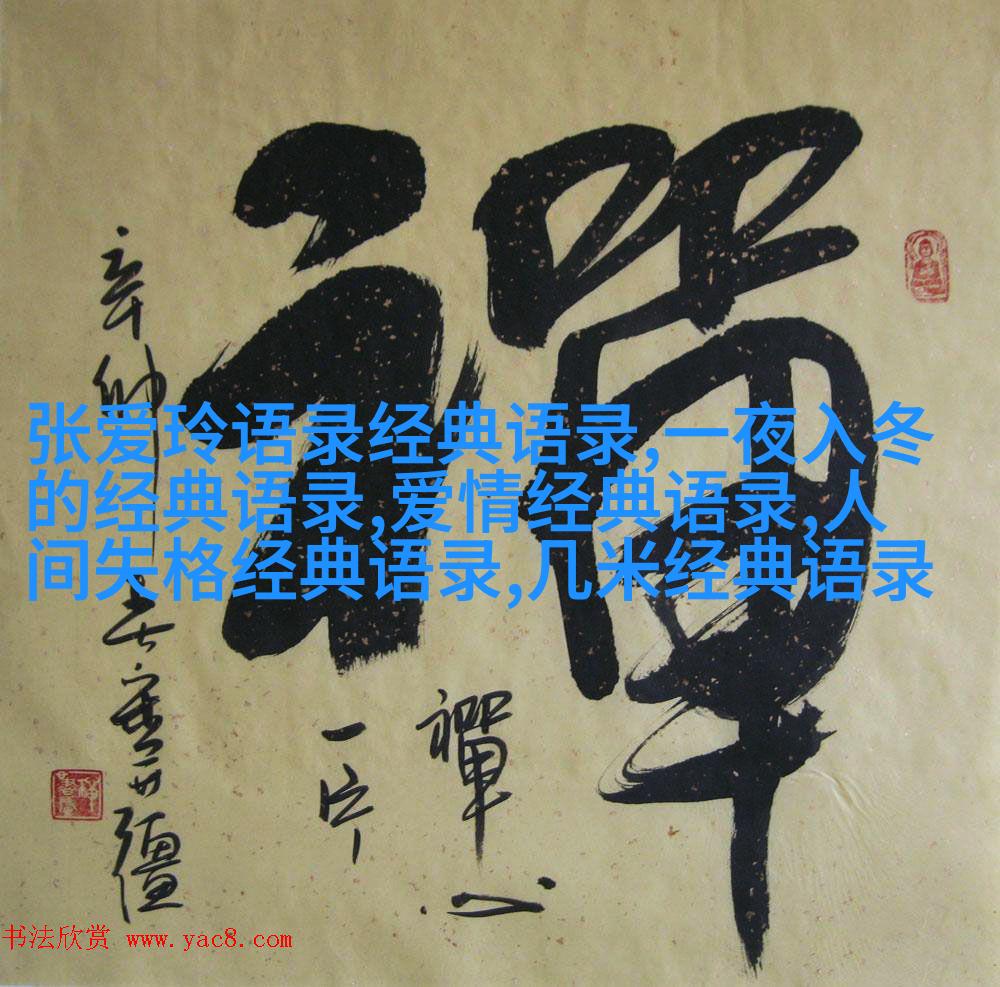 禪
禪心
一片
辛卯
张爱玲语录经典语录,一夜入冬
的经典语录,爱情经典语录,人
间失格经典语录,几米经典语录
书法欣赏 www.yac8.com